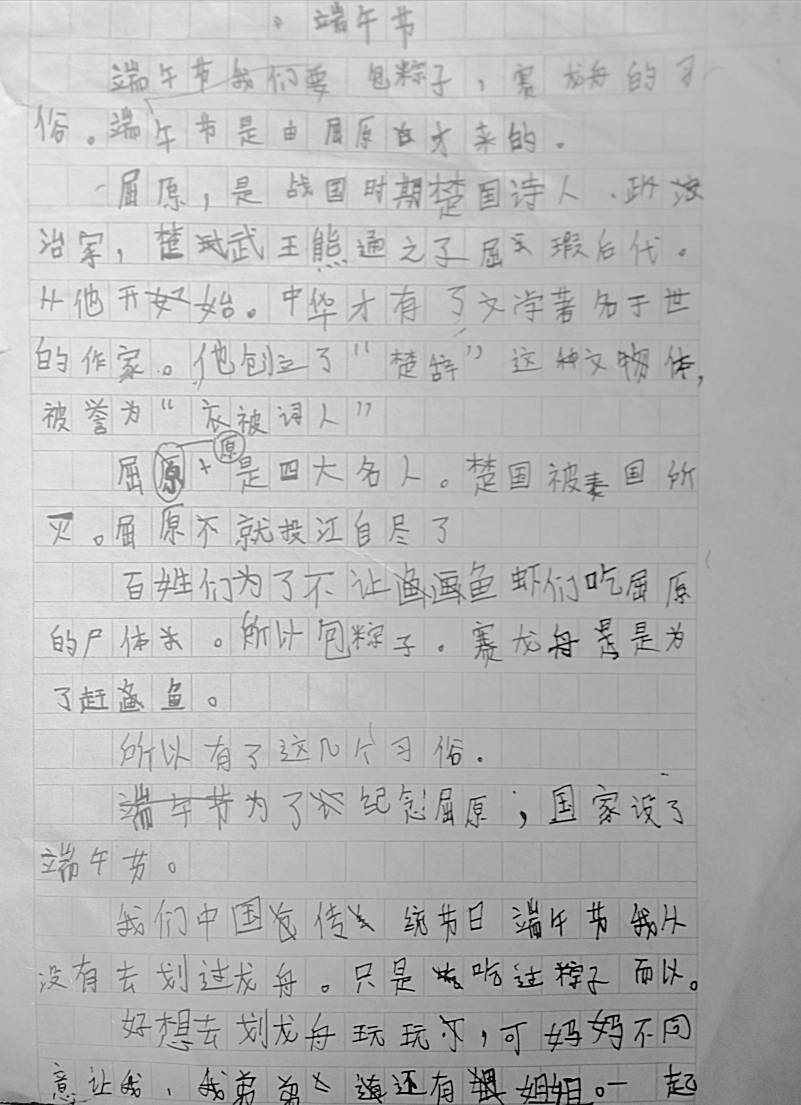 端午节
端午节我们要包粽子，赛龙舟的习
俗。端午节是由屈原自才来的。
屈原，是战国时期楚国诗人、政
治家，楚武王熊通之子屈瑕后代。
从他开始。中华才有了文学著名于世
的作家。他创立了“楚辞”这种文物体，
被誉为“衣被词人”
屈原是四大名人。楚国被秦国所
灭。屈原不就投江自尽了
百姓们为了不让鱼虾们吃屈原
的尸体。所以包粽子。赛龙舟是为
了赶鱼。
所以有了这几个习俗。
为了纪念屈原，国家设了
端午节。
我们中国传统节日端午节我从
没有去划过龙舟。只是吃过粽子而以。
好想去划龙舟玩玩，可妈妈不同
意让我、我弟弟还有姐姐。一起